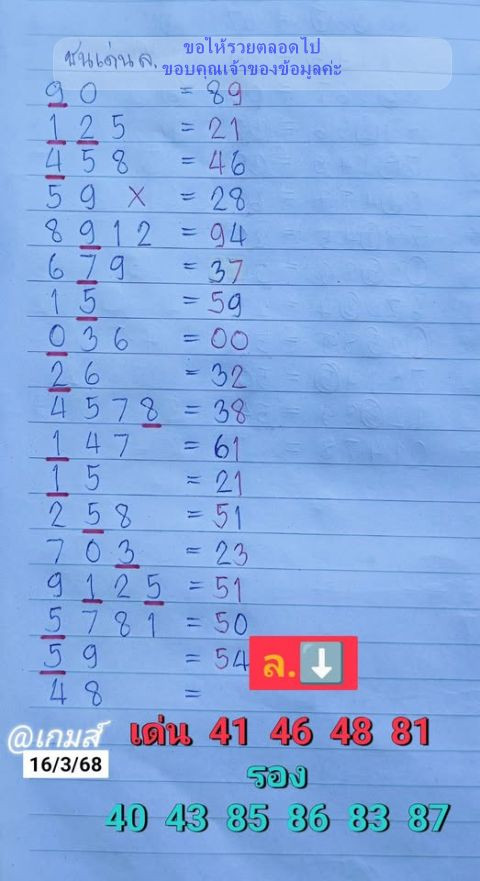 ขอให้รวยตลอดไป
ขอบคุณเจ้าของข้อมูลค่ะ
ชนเด่น ล.
90 = 89
125 = 21
458 = 46
59 X = 28
8912 = 94
679 = 37
15 = 59
036 = 00
26 = 32
4578 = 38
147 = 61
15 = 21
258 = 51
703 = 23
9125 = 51
5781 = 50
59 = 54
ล.⬇️
48 =
@เกมส์ เด่น 41 46 48 81
16/3/68
รอง
40 43 85 86 83 87